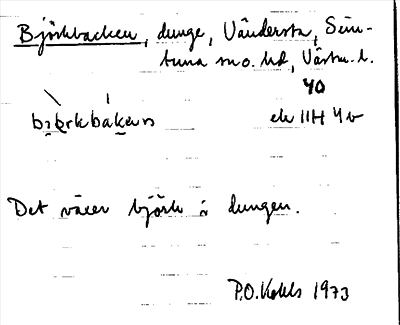 Björkbacken, dunge, Vändersta, Sim-
tuna sn o. hd, Västm. l.
40
björkbaken ek 11H 4v
Det växer björk i dungen.
P.O. 1973